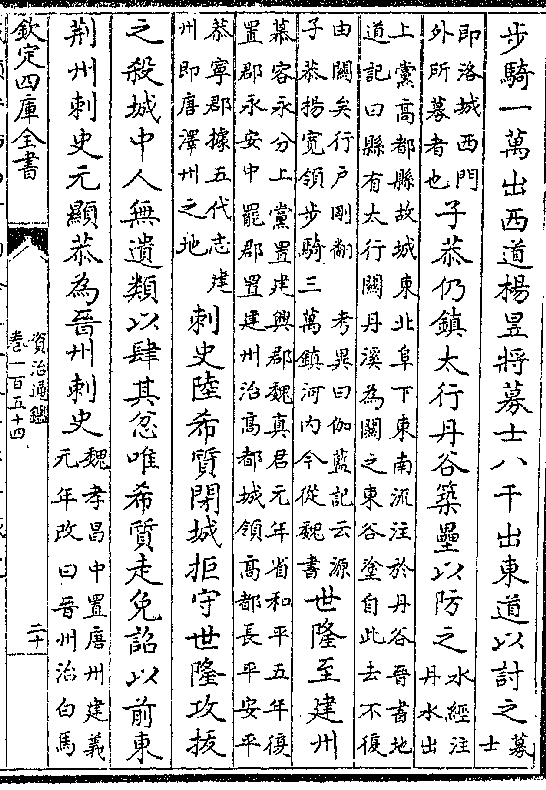 步騎一萬出西道楊昱將募士八千出東道以討之募
士
即洛城西門
外所募者也子恭仍鎮太行丹谷築壘以防之水經注
丹水出
上黨高都縣故城東北阜下東南流注於丹谷晉書地
道記曰縣有太行關丹溪為關之東谷塗自此去不復
由關矣行戶剛翻 考異曰伽藍記云源
子恭楊寬領步騎三萬鎮河内今從魏書世隆至建州
慕容永分上黨置建興郡魏真君元年省和平五年復
置郡永安中罷郡置建州治高都城領高都長平安平
泰寧郡據五代志建
州即唐澤州之地刺史陸希質閉城拒守世隆攻拔
之殺城中人無遺類以肆其忿唯希質走免詔以前東
荆州刺史元顯恭為晉州刺史魏孝昌中置唐州建義
元年改曰晉州治白馬
欽定四庫全書
資治通鑑
卷一百五十四
二十